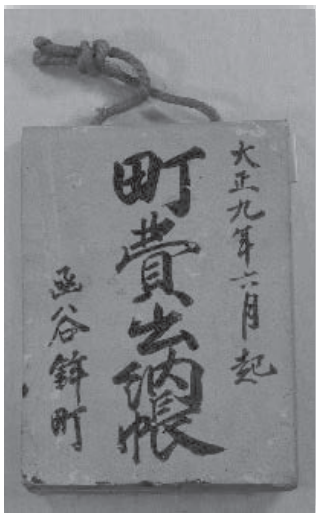 大正九年六月起
町費出納帳
函谷鉾町